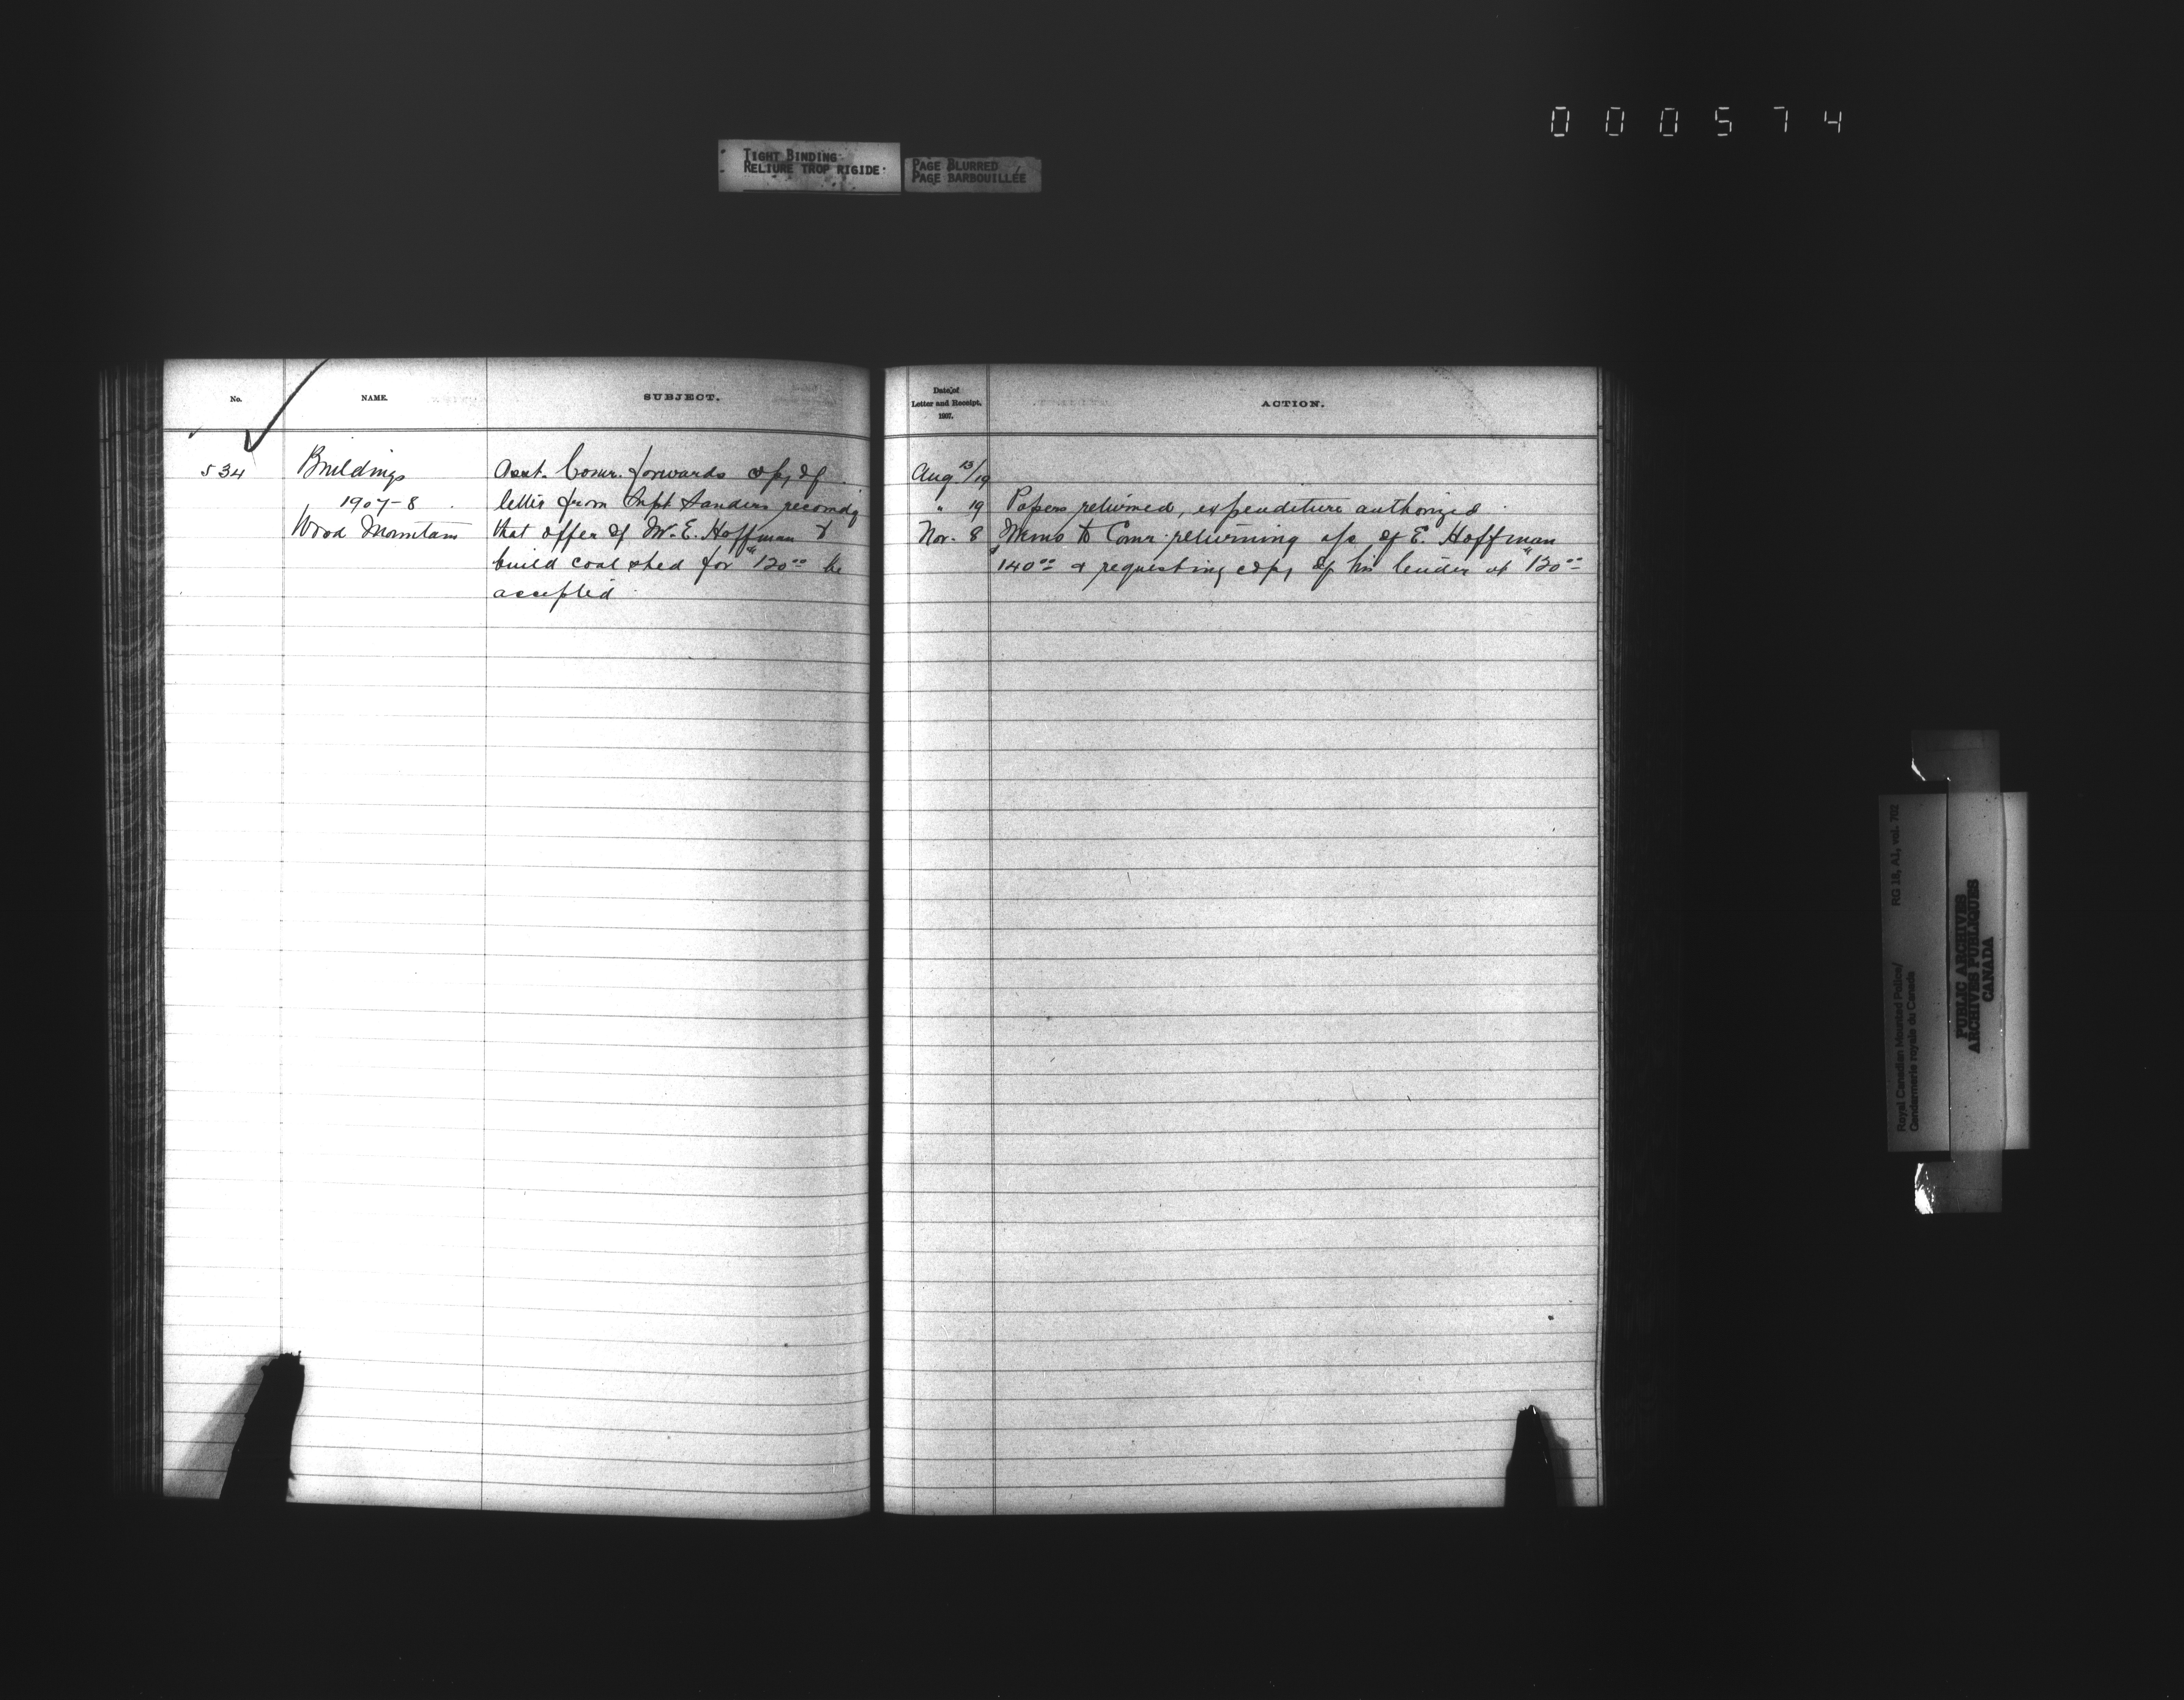 000574
TIGHT BINDING
RELIURE TROP RIGIDE
PAGE BLURRED
PAGE BARBOUILLÉE
No.
NAME.
SUBJECT.
534
Buildings
1907-8
Wood Mountain
Asst. Comr. forwards copy of
letter from Supt Sanders recomdg
that offer of W. E. Hoffman to
build coal shed for $120.00 be
accepted
Date of
Letter and Receipt.
1907.
ACTION.
Aug. 13/19
" 19 Papers returned, expenditure authorized
Nov. 8 Memo to Comr. returning a/c of E. Hoffman
$140.00 & requesting copy of his tender at $120.00
Royal Canadian Mounted Police/
Gendarmerie royale du Canada
RG 18, A1, vol. 702
PUBLIC ARCHIVES
ARCHIVES PUBLIQUES
CANADA